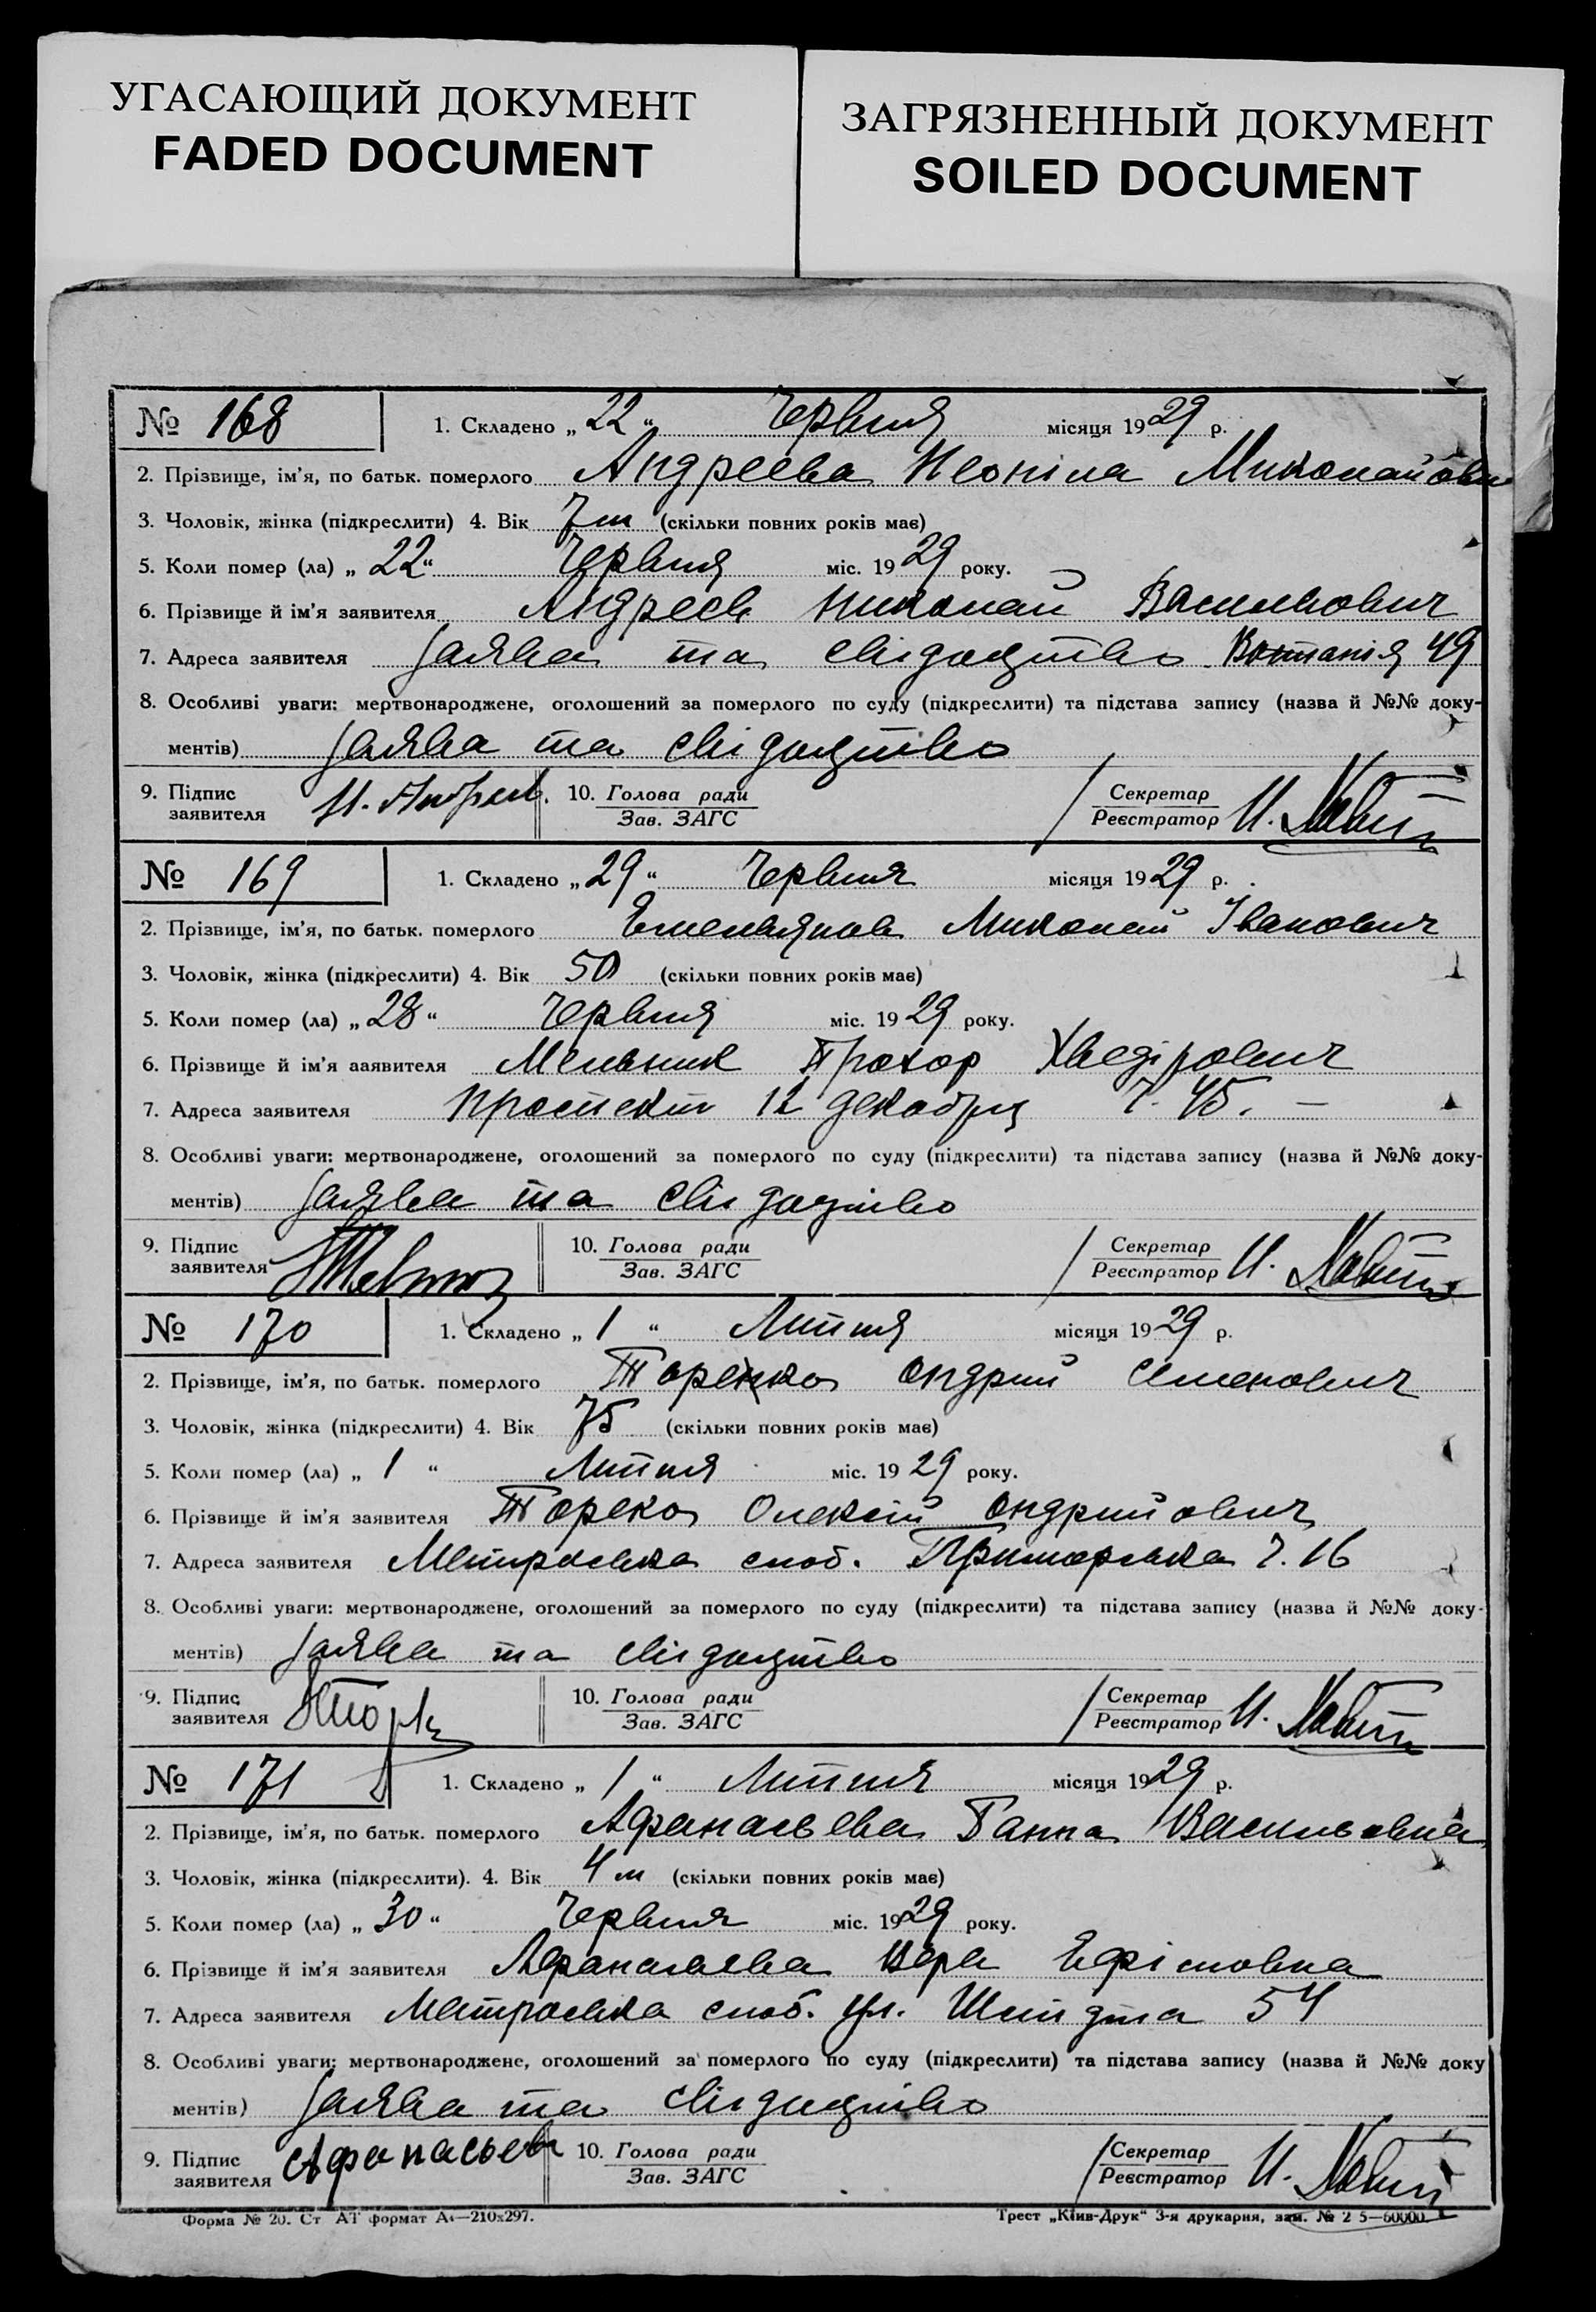 УГАСАЮЩИЙ ДОКУМЕНТ
FADED DOCUMENT
ЗАГРЯЗНЕННЫЙ ДОКУМЕНТ
SOILED DOCUMENT
№ 168 1. Складено „ 22 “ Червня місяця 1929 р.
2. Прізвище, ім'я, по батьк. померлого Андреева Неоніла Миколаиовн
3. Чоловік, жінка (підкреслити) 4. Вік 7 м (скільки повних років має)
5. Коли помер (ла) „ 22 “ Червня міс. 1929 року.
6. Прізвище й ім'я заявителя Андреев Николай Васильович
7. Адреса заявителя Заява та свідоцтво 49
8. Особливі уваги: мертвонароджене, оголошений за померлого по суду (підкреслити) та підстава запису (назва й №№ доку-
ментів) Заява та свідоцтво
9. Підпис заявителя Н. Андреев. 10. Голова ради Зав. ЗАГС Секретар Реєстратор И.
№ 169 1. Складено „ 29 “ Червня місяця 1929 р.
2. Прізвище, ім'я, по батьк. померлого Емельянов Миколай Іванович
3. Чоловік, жінка (підкреслити) 4. Вік 50 (скільки повних років має)
5. Коли помер (ла) „ 28 “ Червня міс. 1929 року.
6. Прізвище й ім'я заявителя Мельник Прохор Хведірович
7. Адреса заявителя проспект 12 декабря ч. 45. –
8. Особливі уваги: мертвонароджене, оголошений за померлого по суду (підкреслити) та підстава запису (назва й №№ доку-
ментів) Заява та свідоцтво
9. Підпис заявителя 10. Голова ради Зав. ЗАГС Секретар Реєстратор И.
№ 170 1. Складено „ 1 “ Липня місяця 1929 р.
2. Прізвище, ім'я, по батьк. померлого Андрий Семенович
3. Чоловік, жінка (підкреслити) 4. Вік 75 (скільки повних років має)
5. Коли помер (ла) „ 1 “ Липня міс. 1929 року.
6. Прізвище й ім'я заявителя Торека Олексій Андрийович
7. Адреса заявителя Матроська слоб. Приморська ч. 16
8. Особливі уваги: мертвонароджене, оголошений за померлого по суду (підкреслити) та підстава запису (назва й №№ доку-
ментів) Заява та свідоцтво
9. Підпис заявителя 10. Голова ради Зав. ЗАГС Секретар Реєстратор И.
№ 171 1. Складено „ 1 “ Липня місяця 1929 р.
2. Прізвище, ім'я, по батьк. померлого Афанасьева Ганна Васильовна
3. Чоловік, жінка (підкреслити). 4. Вік 4 м (скільки повних років має)
5. Коли помер (ла) „ 30 “ Червня міс. 1929 року.
6. Прізвище й ім'я заявителя Афанасьева Віра Ефімовна
7. Адреса заявителя Матроська слоб. ул. Шмидта 54
8. Особливі уваги: мертвонароджене, оголошений за померлого по суду (підкреслити) та підстава запису (назва й №№ доку
ментів) Заява та свідоцтво
9. Підпис заявителя Афанасьев 10. Голова ради Зав. ЗАГС Секретар Реєстратор И.
Форма № 20. Ст АТ формат А4—210х297. Трест „Київ-Друк“ 3-я друкарня, зам. № 2 5—60000.